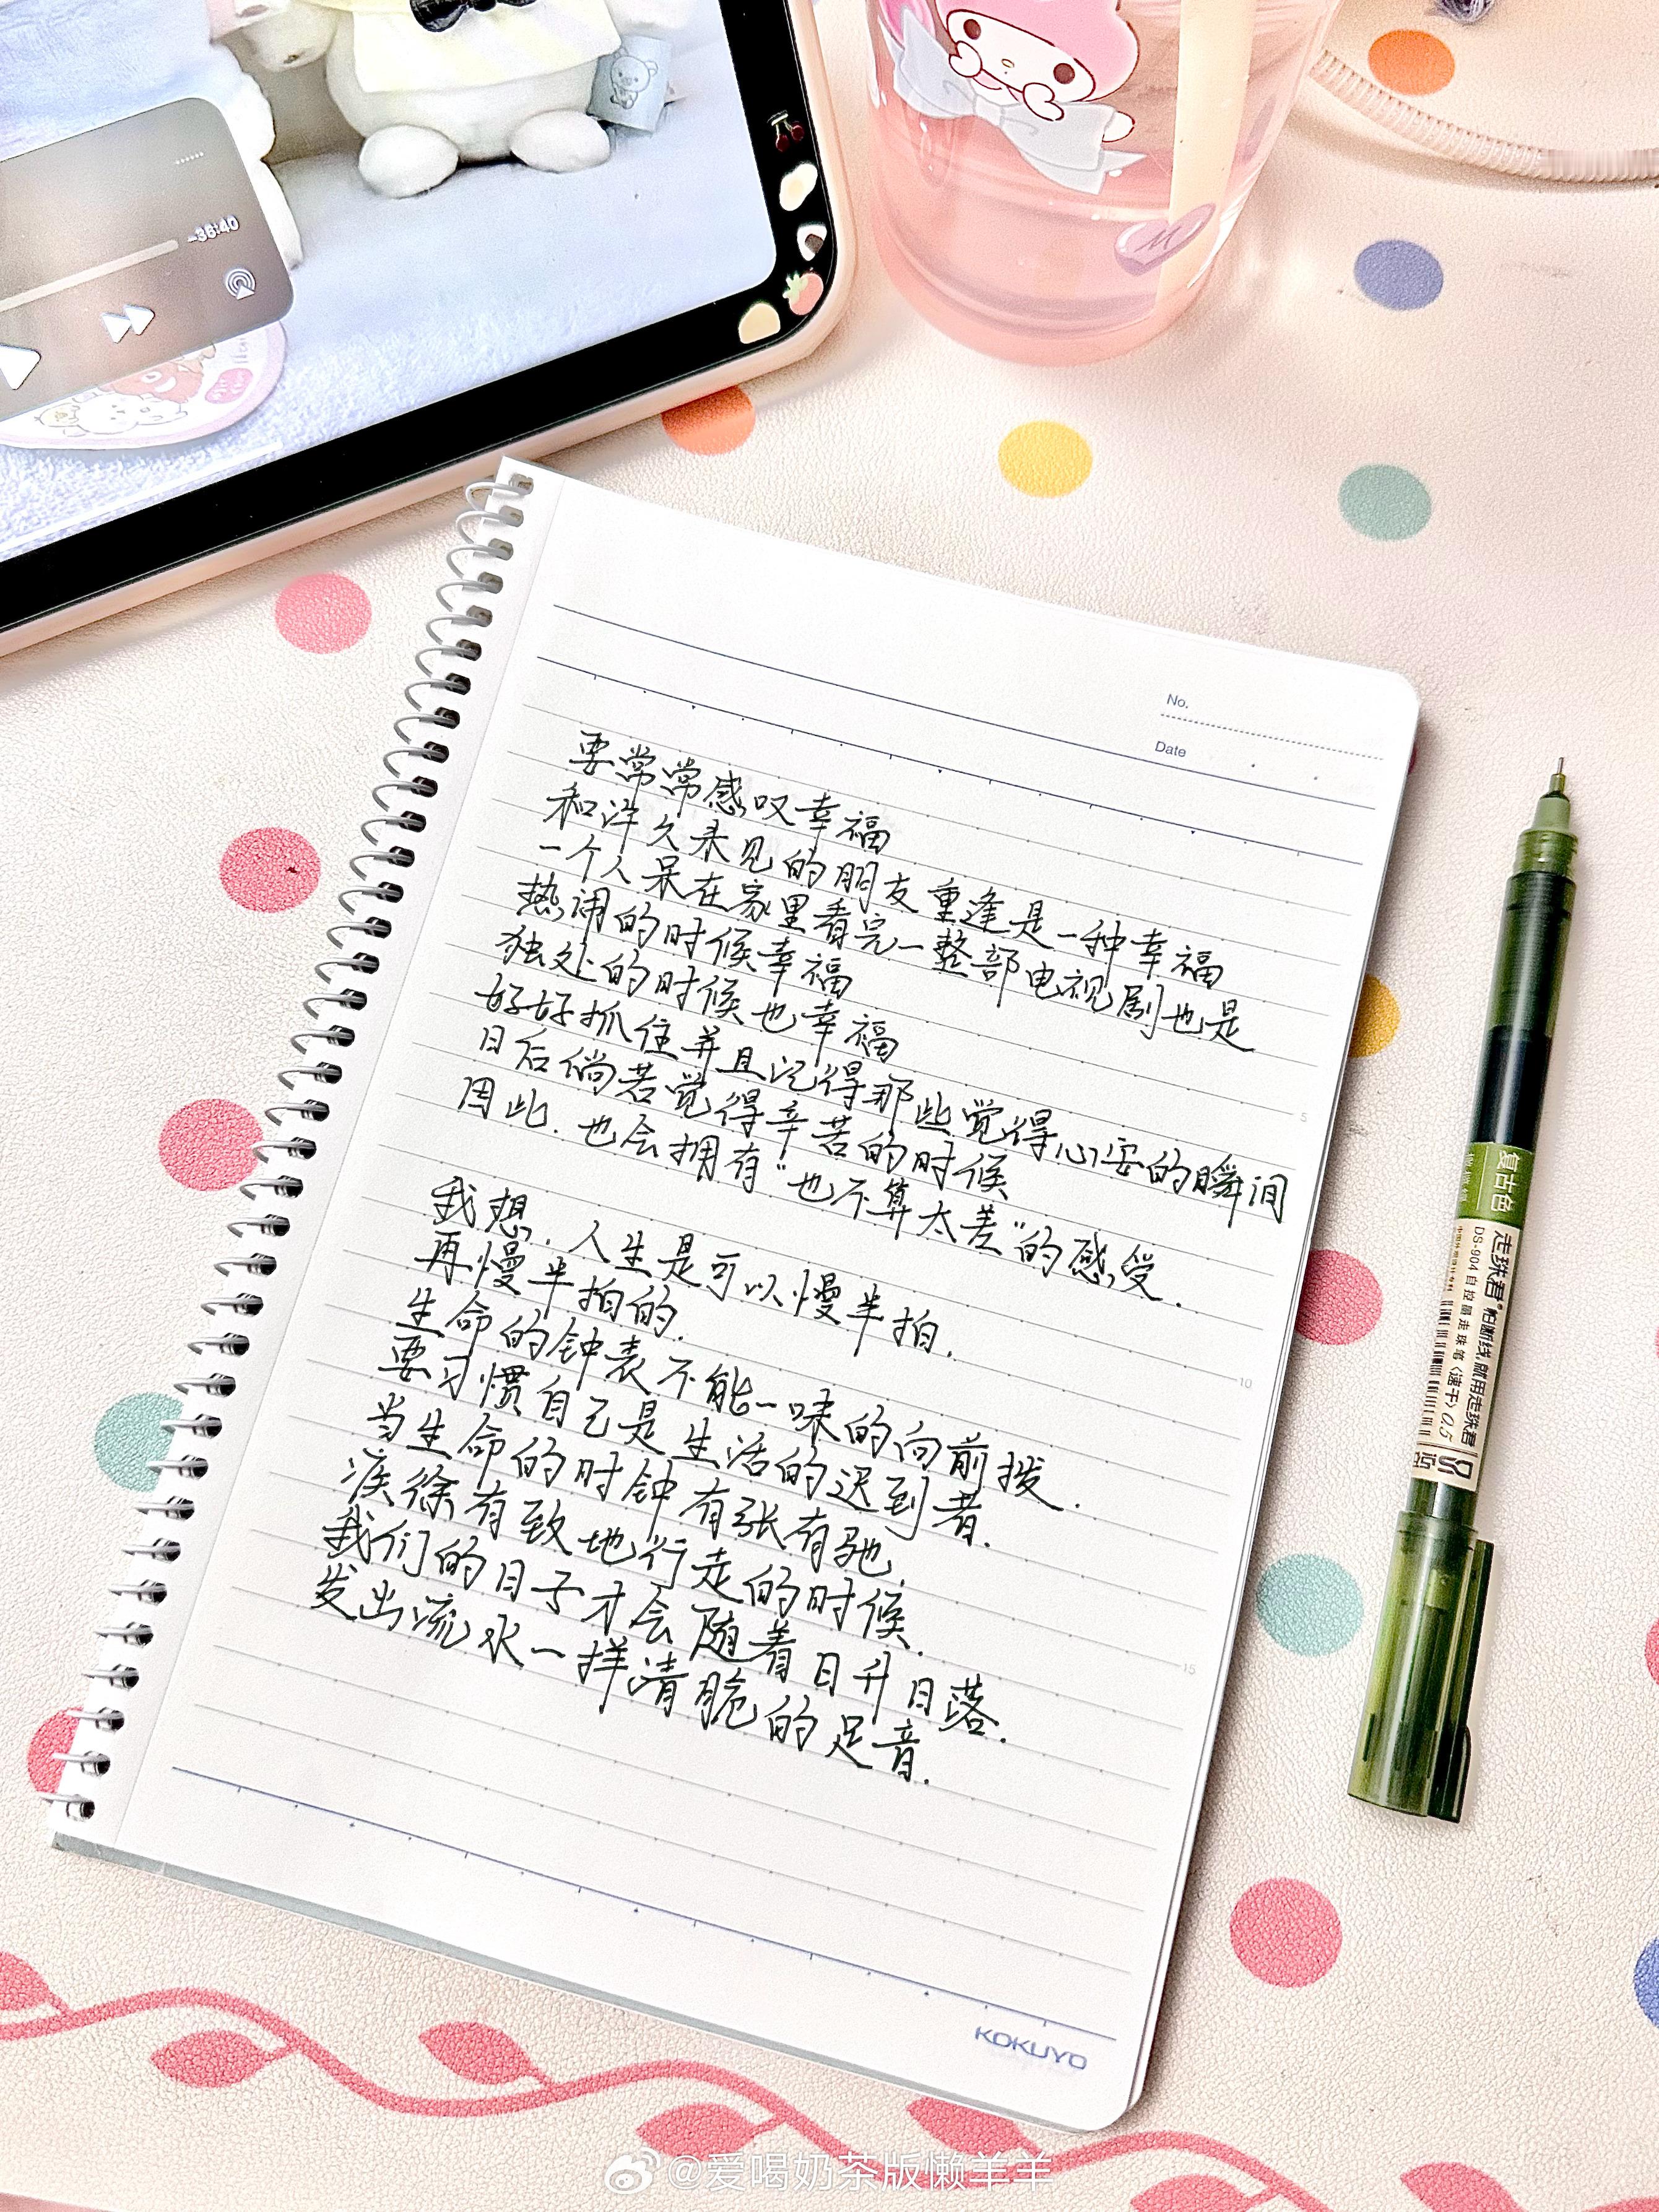 -36:40
M
No.
Date
要常常感叹幸福
和许久未见的朋友重逢是一种幸福
一个人呆在家里看完一整部电视剧也是
热闹的时候幸福
独处的时候也幸福
好好抓住并且记得那些觉得心安的瞬间
日后倘若觉得辛苦的时候
因此.也会拥有“也不算太差”的感受.
我想.人生是可以慢半拍.
再慢半拍的.
生命的钟表不能一味的向前拨.
要习惯自己是生活的迟到者.
当生命的时钟有张有驰.
疾徐有致地行走的时候.
我们的日子才会随着日升日落.
发出流水一样清脆的足音.
5
10
15
KOKUYO
复古色
走珠君® 怕断线,就用走珠君
DS-904 自控墨走珠笔(速干) 0.5
@爱喝奶茶版懒羊羊